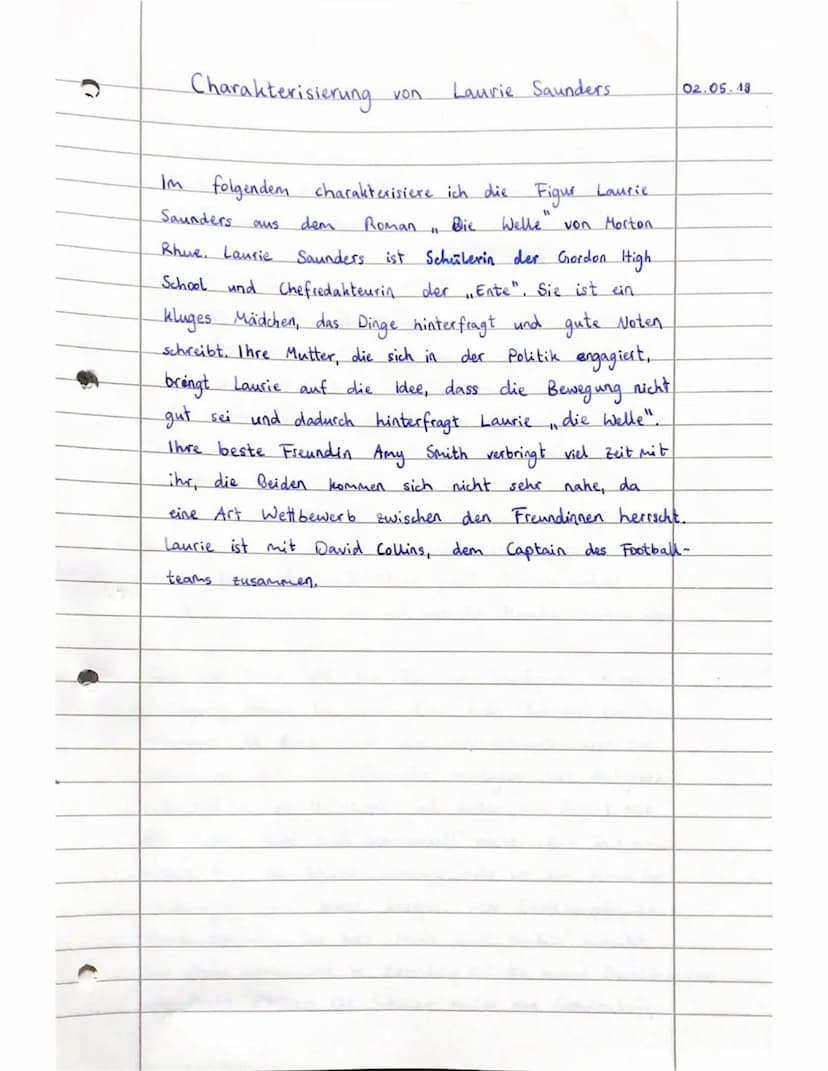 Charakterisierung von Laurie Saunders 02.05.18
Im folgendem charakterisiere ich die Figur Laurie
Saunders aus dem Roman „Die Welle" von Morton
Rhue. Laurie Saunders ist Schülerin der Gordon High
School und Chefredakteurin der „Ente". Sie ist ein
kluges Mädchen, das Dinge hinterfragt und gute Noten
schreibt. Ihre Mutter, die sich in der Politik engagiert,
bringt Laurie auf die Idee, dass die Bewegung nicht
gut sei und dadurch hinterfragt Laurie „die Welle".
Ihre beste Freundin Amy Smith verbringt viel Zeit mit
ihr, die Beiden kommen sich nicht sehr nahe, da
eine Art Wettbewerb zwischen den Freundinnen herrscht.
Laurie ist mit David Collins, dem Captain des Football-
teams zusammen.